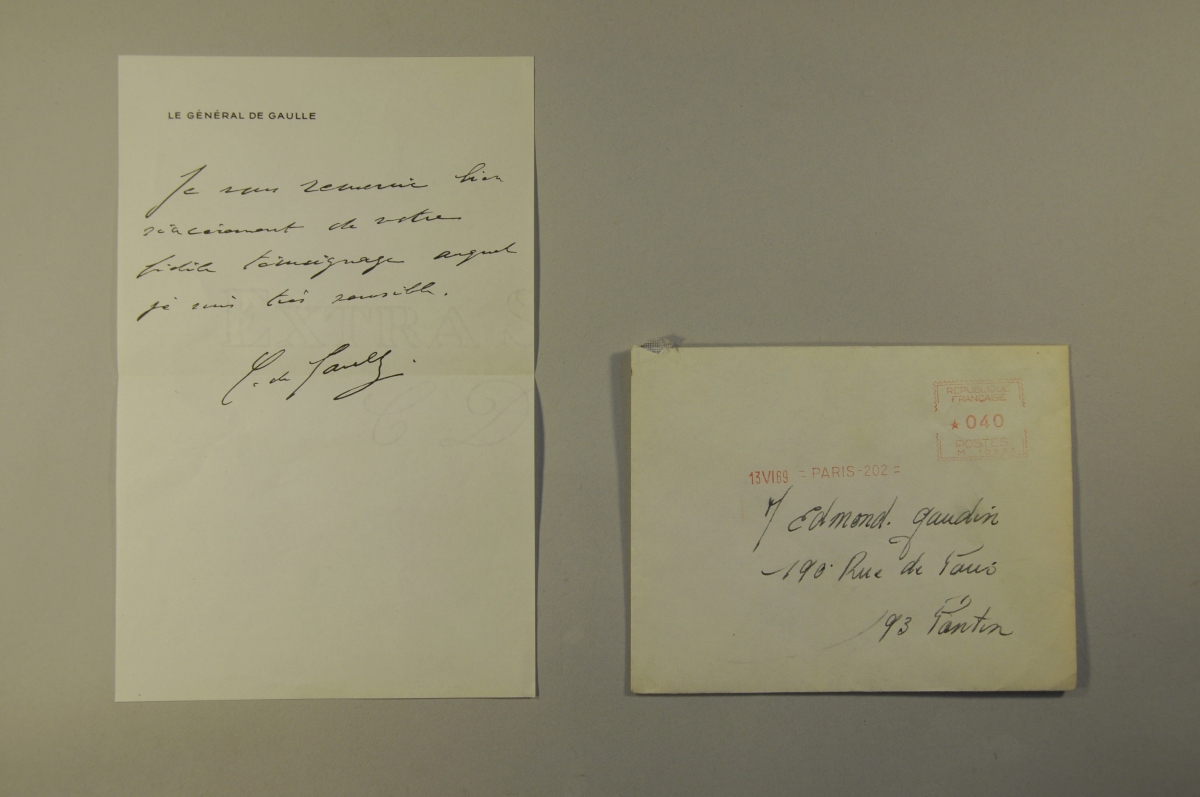 LE GÉNÉRAL DE GAULLE
Je vous remercie bien
sincèrement de votre
fidèle témoignage auquel
je suis très sensible.
C. de Gaulle.
EXTRA S
C D
RÉPUBLIQUE
FRANÇAISE
★ 040
POSTES
13 VI 69 = PARIS-202 =
Edmond. Gaudin
190 Rue de Paris
93 Pantin